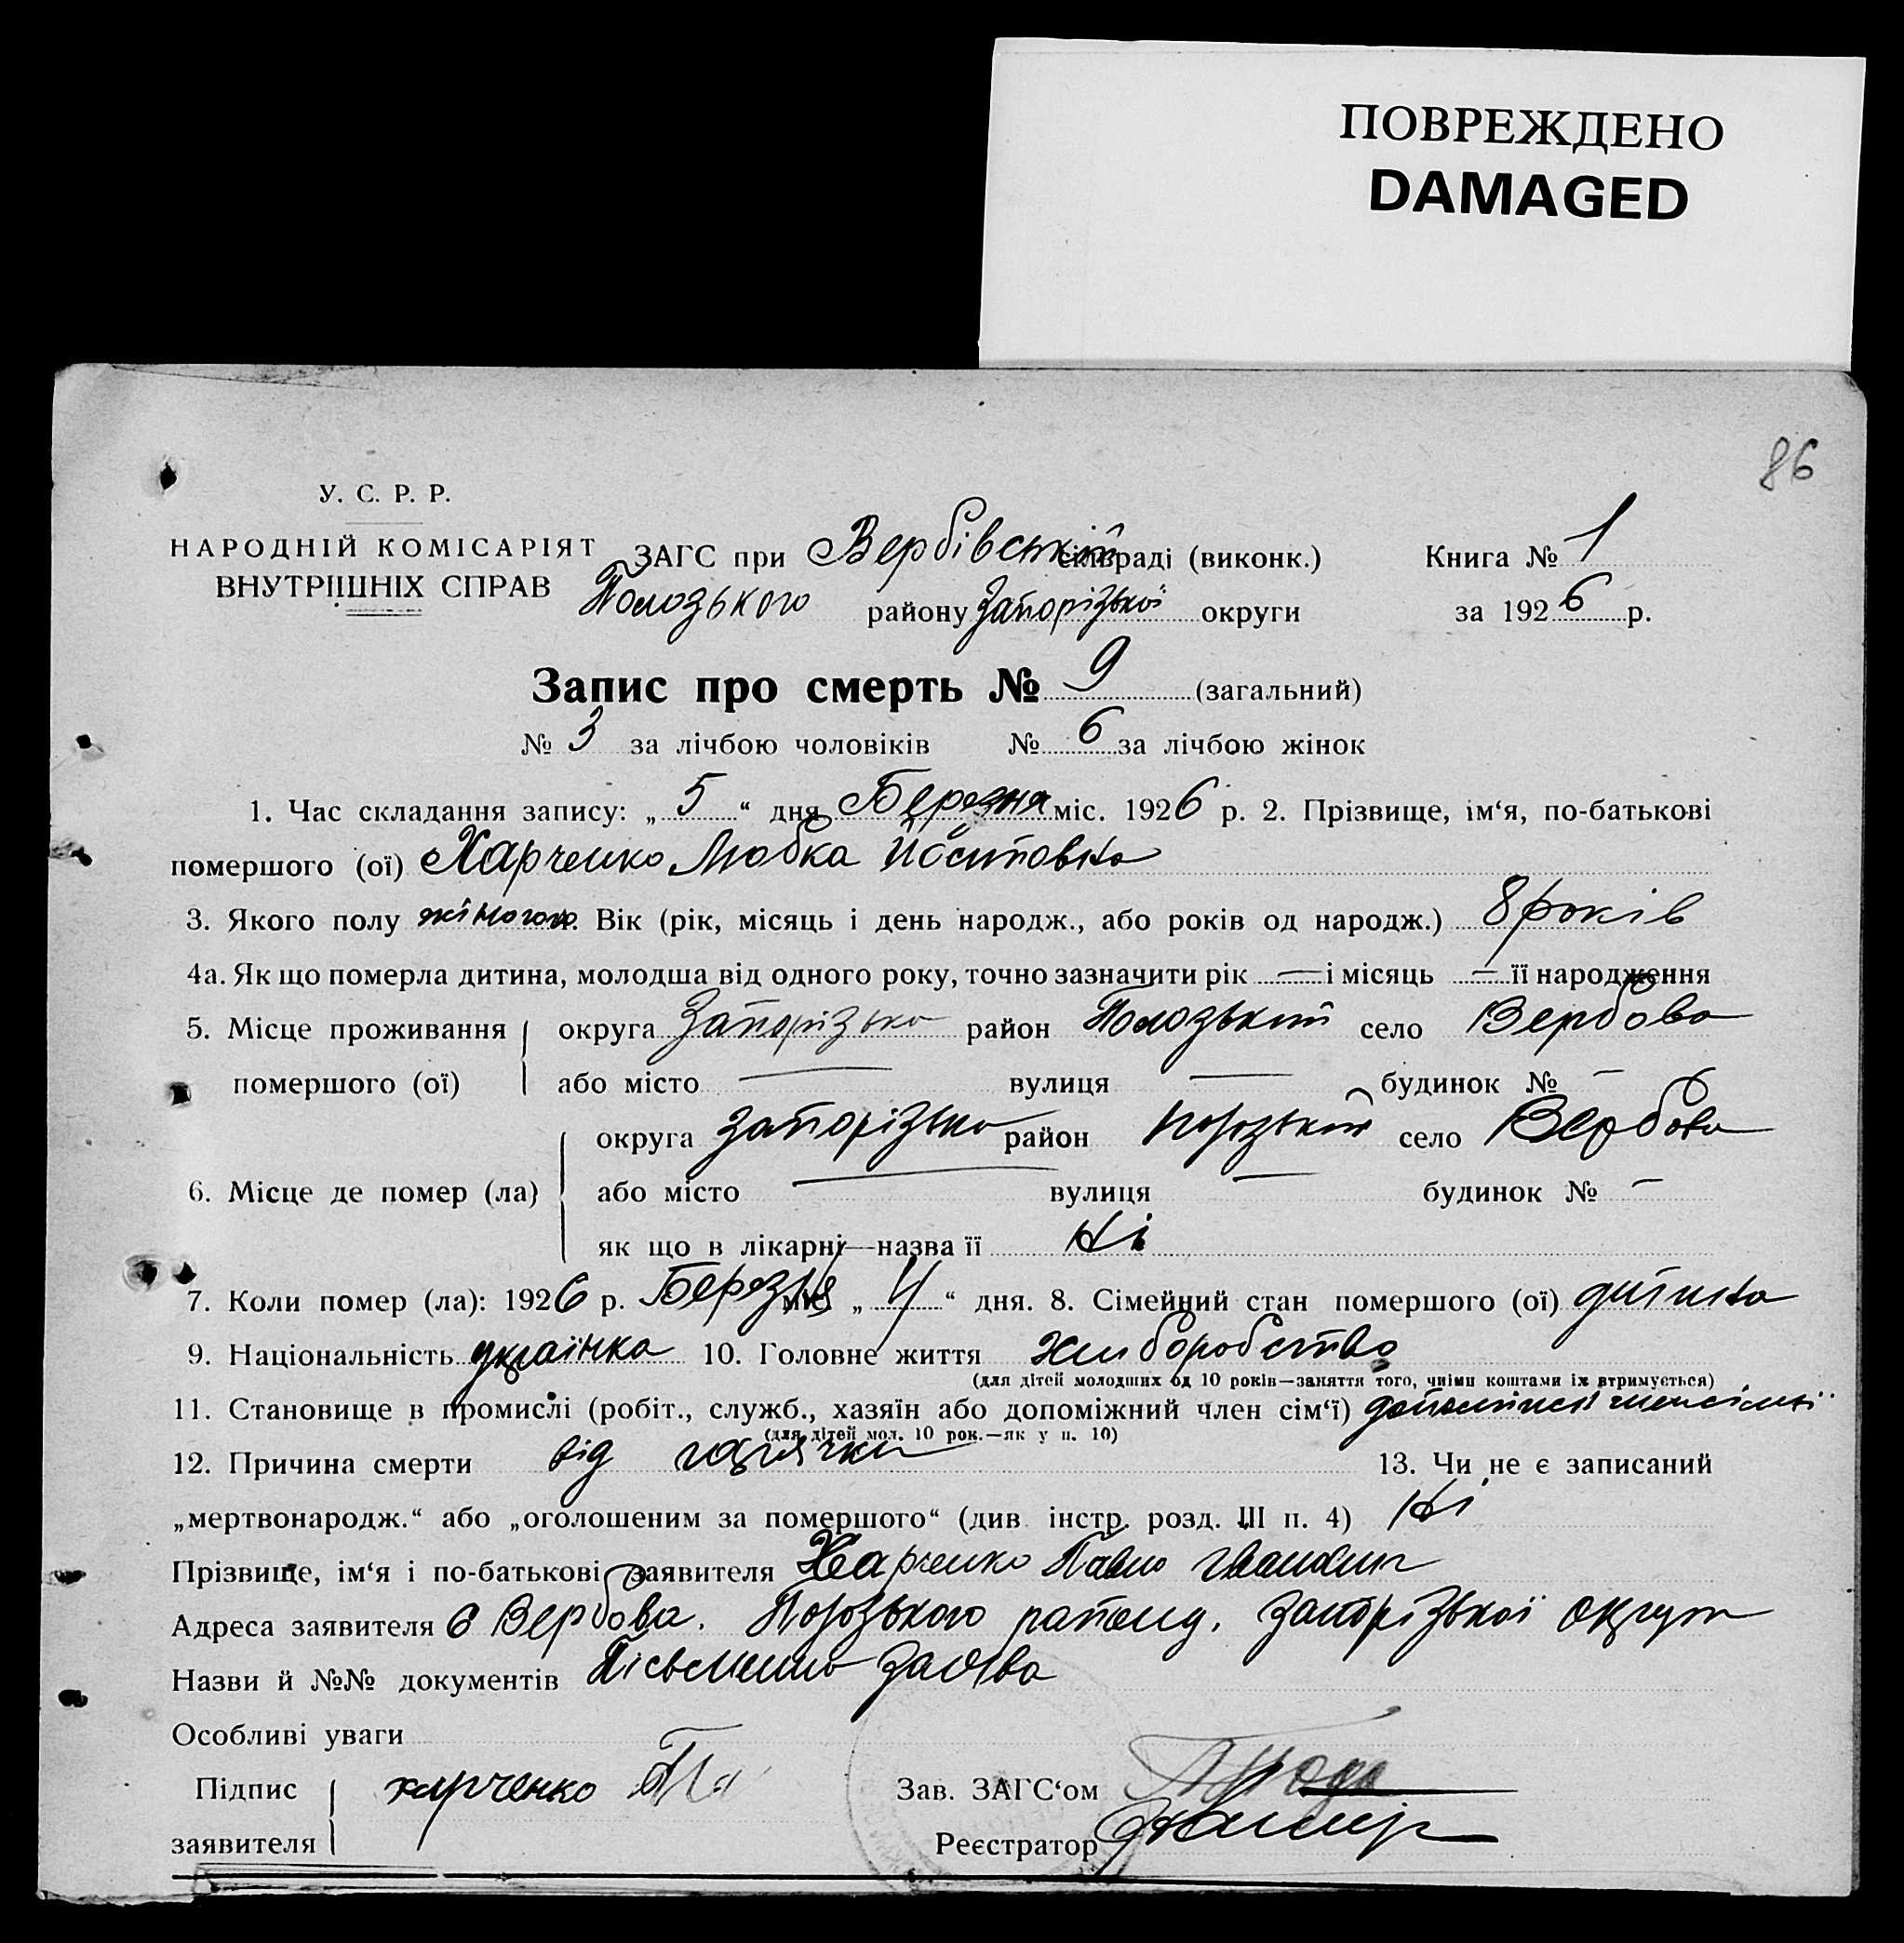 ПОВРЕЖДЕНО
DAMAGED
86
У. С. Р. Р.
НАРОДНІЙ КОМІСАРІЯТ
ВНУТРІШНІХ СПРАВ
ЗАГС при Вербівській сільраді (виконк.) Книга № 1
Полозького району Запорізької округи за 1926 р.
Запис про смерть № 9 (загальний)
№ 3 за лічбою чоловіків № 6 за лічбою жінок
1. Час складання запису: „5“ дня Березня міс. 1926 р. 2. Прізвище, ім‘я, по-батькові
помершого (ої) Харченко Любка Йоситовна
3. Якого полу жіногою 4. Вік (рік, місяць і день народж., або років од народж.) 8 років
4а. Як що померла дитина, молодша від одного року, точно зазначити рік — і місяць — її народження
5. Місце проживання помершого (ої) округа Запорізька район Полозький село Вербова
або місто — вулиця — будинок № —
6. Місце де помер (ла) округа Запорізька район Полозький село Вербова
або місто — вулиця — будинок № —
як що в лікарні—назва її Ні
7. Коли помер (ла): 1926 р. Березня міс. „4“ дня. 8. Сімейний стан помершого (ої) дитина
9. Національність українка 10. Головне життя Хліборобство
(для дітей молодших од 10 років—заняття того, чиїми коштами їх втримується)
11. Становище в промислі (робіт., служб., хазяїн або допоміжний член сім‘ї)
(для дітей мол. 10 рок.—як у п. 10)
12. Причина смерти від горячки 13. Чи не є записаний
„мертвонародж.“ або „оголошеним за помершого“ (див. інстр. розд. III п. 4) Ні
Прізвище, ім‘я і по-батькові заявителя Харченко Павло
Адреса заявителя с Вербова. Полозького району. Запорізької округи
Назви й №№ документів Пісьменна заява
Особливі уваги
Підпис заявителя харченко Зав. ЗАГС‘ом
Реєстратор